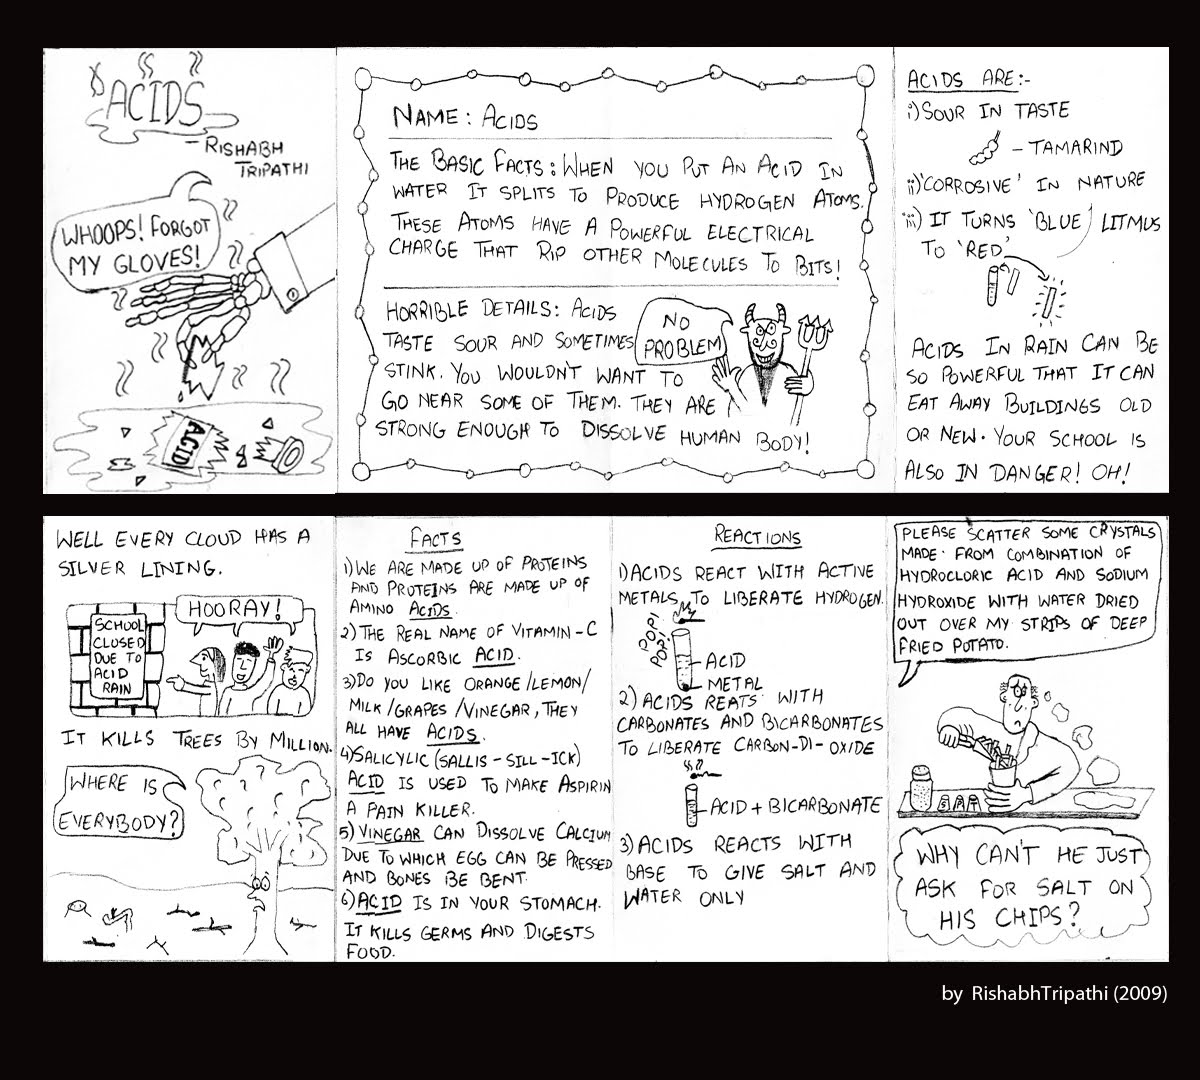 ACIDS
- RISHABH
TRIPATHI
WHOOPS! FORGOT
MY GLOVES!
ACID
NAME: ACIDS
THE BASIC FACTS: WHEN YOU PUT AN ACID IN
WATER IT SPLITS TO PRODUCE HYDROGEN ATOMS.
THESE ATOMS HAVE A POWERFUL ELECTRICAL
CHARGE THAT RIP OTHER MOLECULES TO BITS!
HORRIBLE DETAILS: ACIDS
TASTE SOUR AND SOMETIMES
STINK. YOU WOULDN'T WANT TO
GO NEAR SOME OF THEM. THEY ARE
STRONG ENOUGH TO DISSOLVE HUMAN BODY!
NO
PROBLEM
ACIDS ARE:-
i) SOUR IN TASTE
- TAMARIND
ii) 'CORROSIVE' IN NATURE
iii) IT TURNS 'BLUE' LITMUS
TO 'RED'
ACIDS IN RAIN CAN BE
SO POWERFUL THAT IT CAN
EAT AWAY BUILDINGS OLD
OR NEW. YOUR SCHOOL IS
ALSO IN DANGER! OH!
WELL EVERY CLOUD HAS A
SILVER LINING.
HOORAY!
SCHOOL
CLOSED
DUE TO
ACID
RAIN
IT KILLS TREES BY MILLION.
WHERE IS
EVERYBODY?
FACTS
1) WE ARE MADE UP OF PROTEINS
AND PROTEINS ARE MADE UP OF
AMINO ACIDS.
2) THE REAL NAME OF VITAMIN-C
IS ASCORBIC ACID.
3) DO YOU LIKE ORANGE/LEMON/
MILK/GRAPES/VINEGAR, THEY
ALL HAVE ACIDS.
4) SALICYLIC (SALLIS-SILL-ICK)
ACID IS USED TO MAKE ASPIRIN
A PAIN KILLER.
5) VINEGAR CAN DISSOLVE CALCIUM
DUE TO WHICH EGG CAN BE PRESSED
AND BONES BE BENT.
6) ACID IS IN YOUR STOMACH.
IT KILLS GERMS AND DIGESTS
FOOD.
REACTIONS
1) ACIDS REACT WITH ACTIVE
METALS TO LIBERATE HYDROGEN.
POP!
POP!
ACID
METAL
2) ACIDS REATS WITH
CARBONATES AND BICARBONATES
TO LIBERATE CARBON-DI-OXIDE
ACID + BICARBONATE
3) ACIDS REACTS WITH
BASE TO GIVE SALT AND
WATER ONLY
PLEASE SCATTER SOME CRYSTALS
MADE FROM COMBINATION OF
HYDROCLORIC ACID AND SODIUM
HYDROXIDE WITH WATER DRIED
OUT OVER MY STRIPS OF DEEP
FRIED POTATO.
WHY CAN'T HE JUST
ASK FOR SALT ON
HIS CHIPS?
by RishabhTripathi (2009)